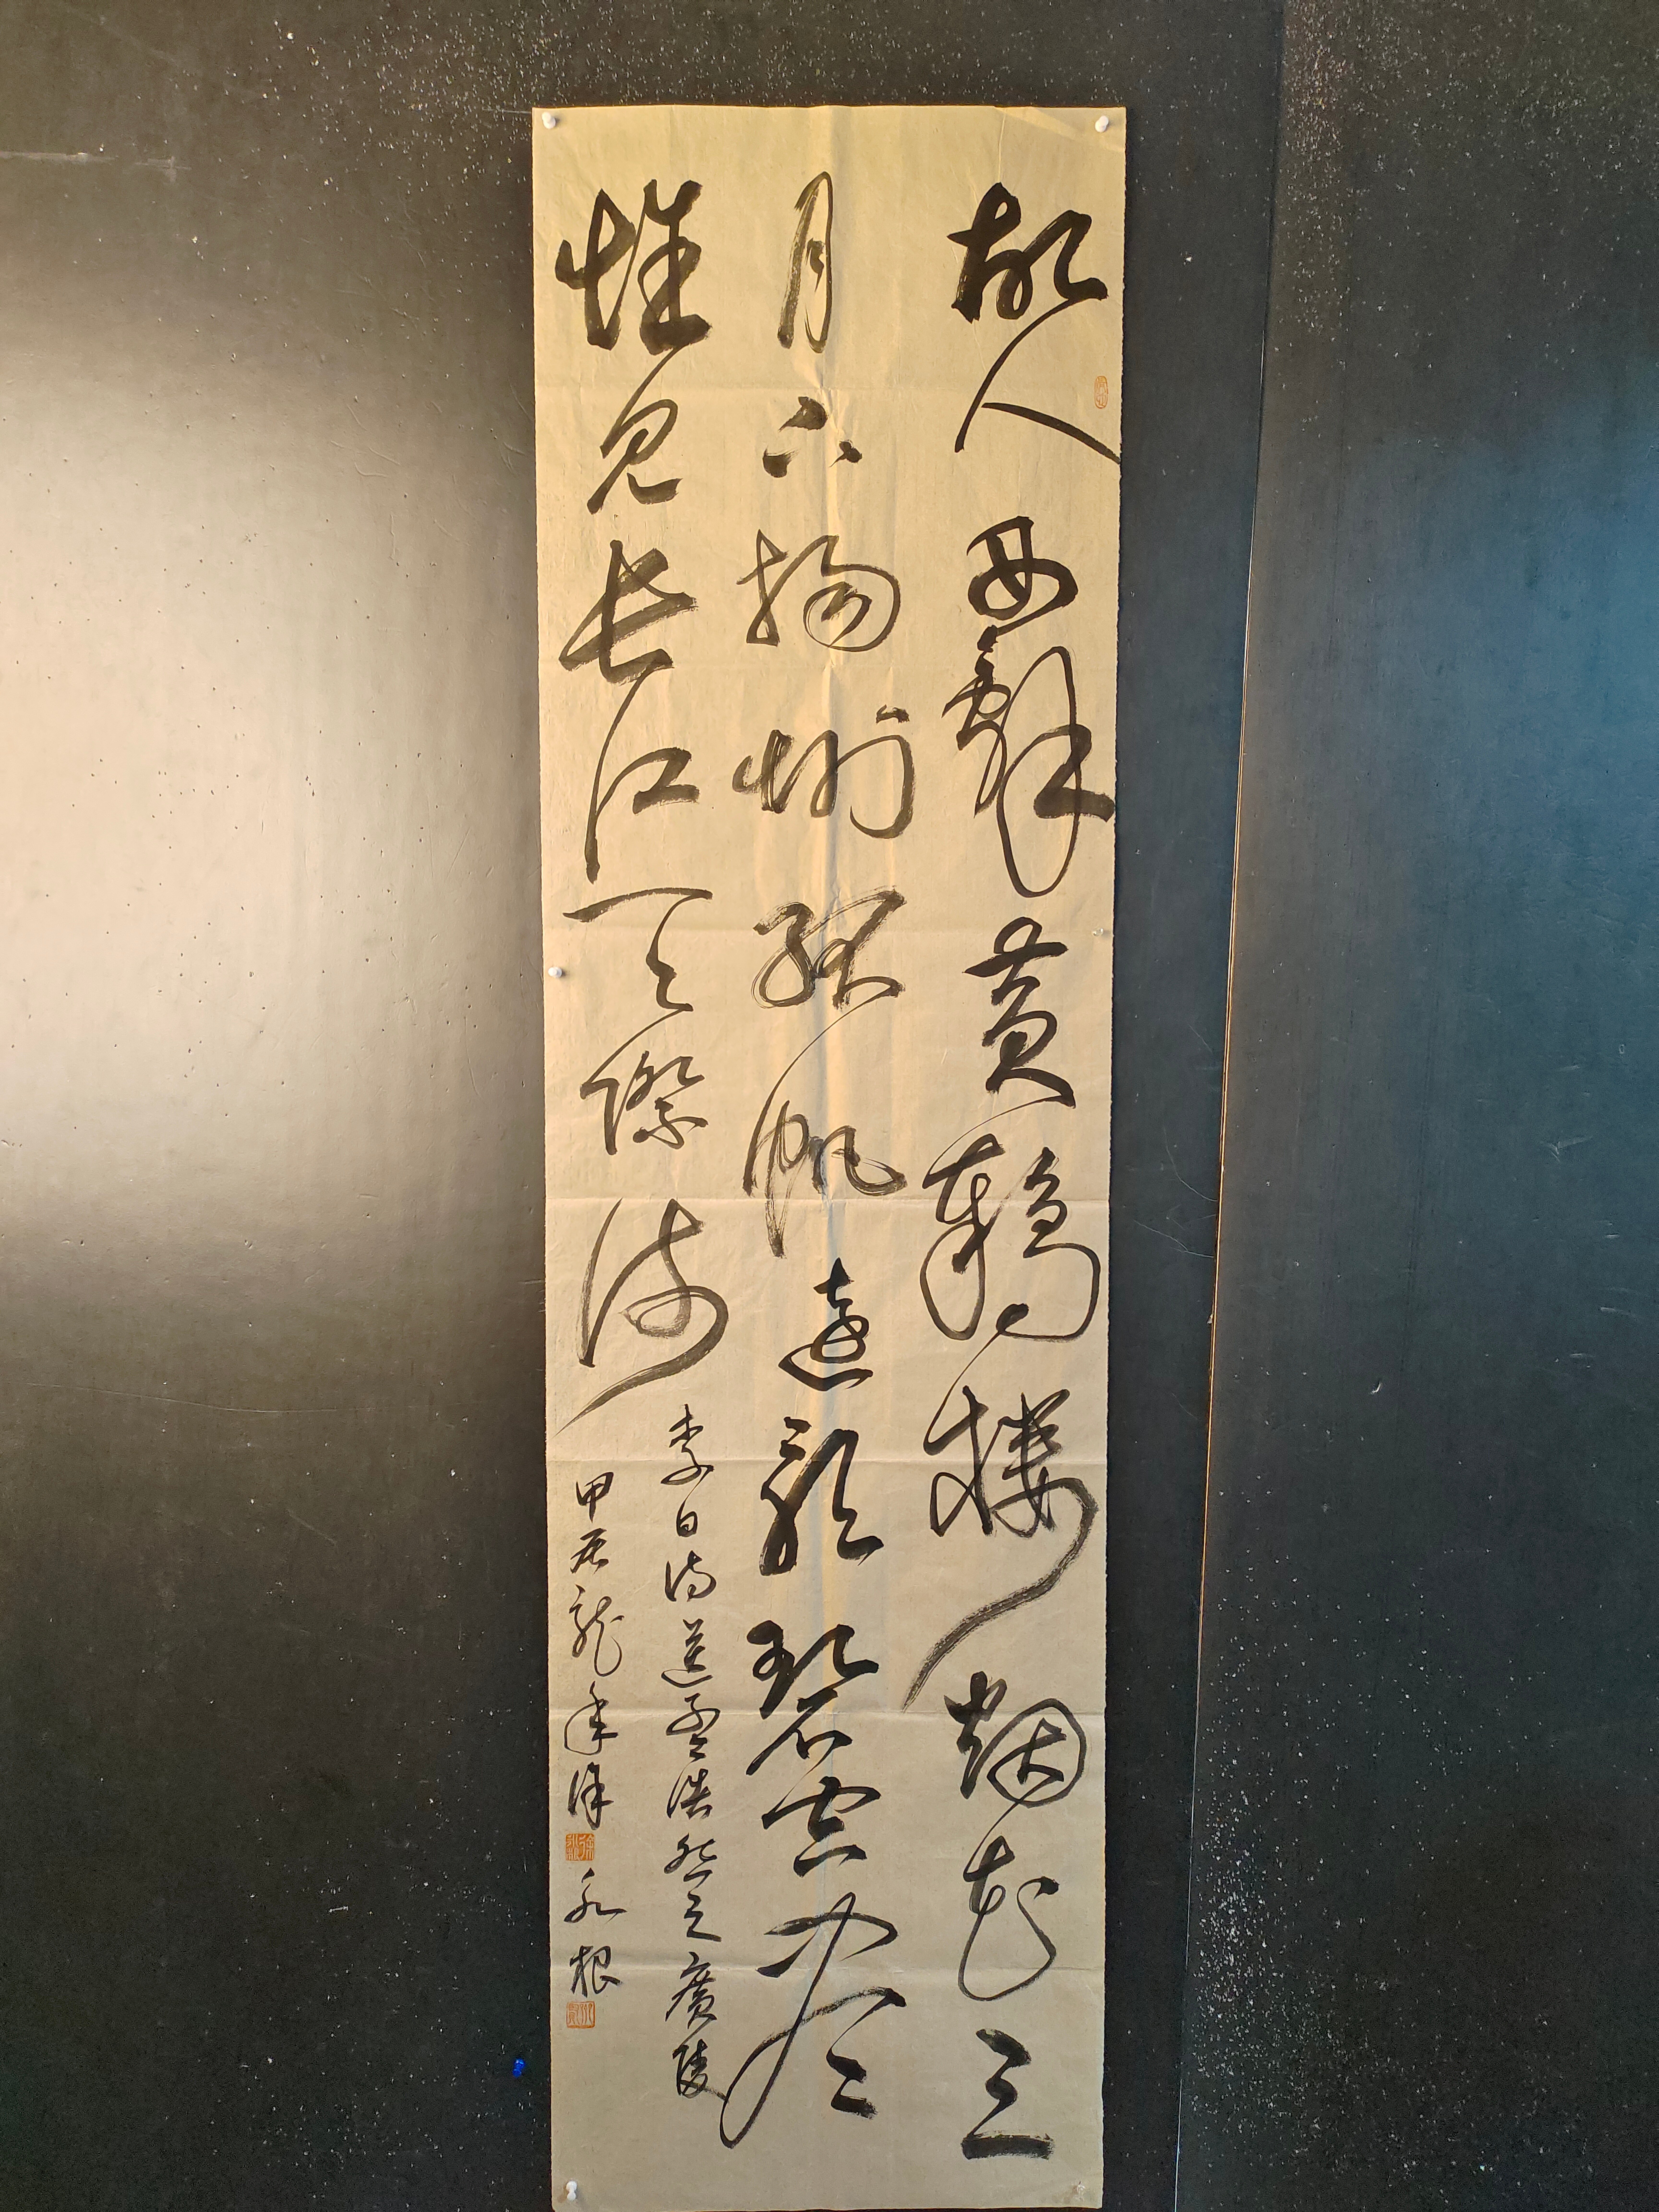 故人西辭黃鶴樓烟花三
月下揚州孤帆遠影碧空盡
惟見長江天際流
李白詩送孟浩然之廣陵
甲辰龍年徐永根